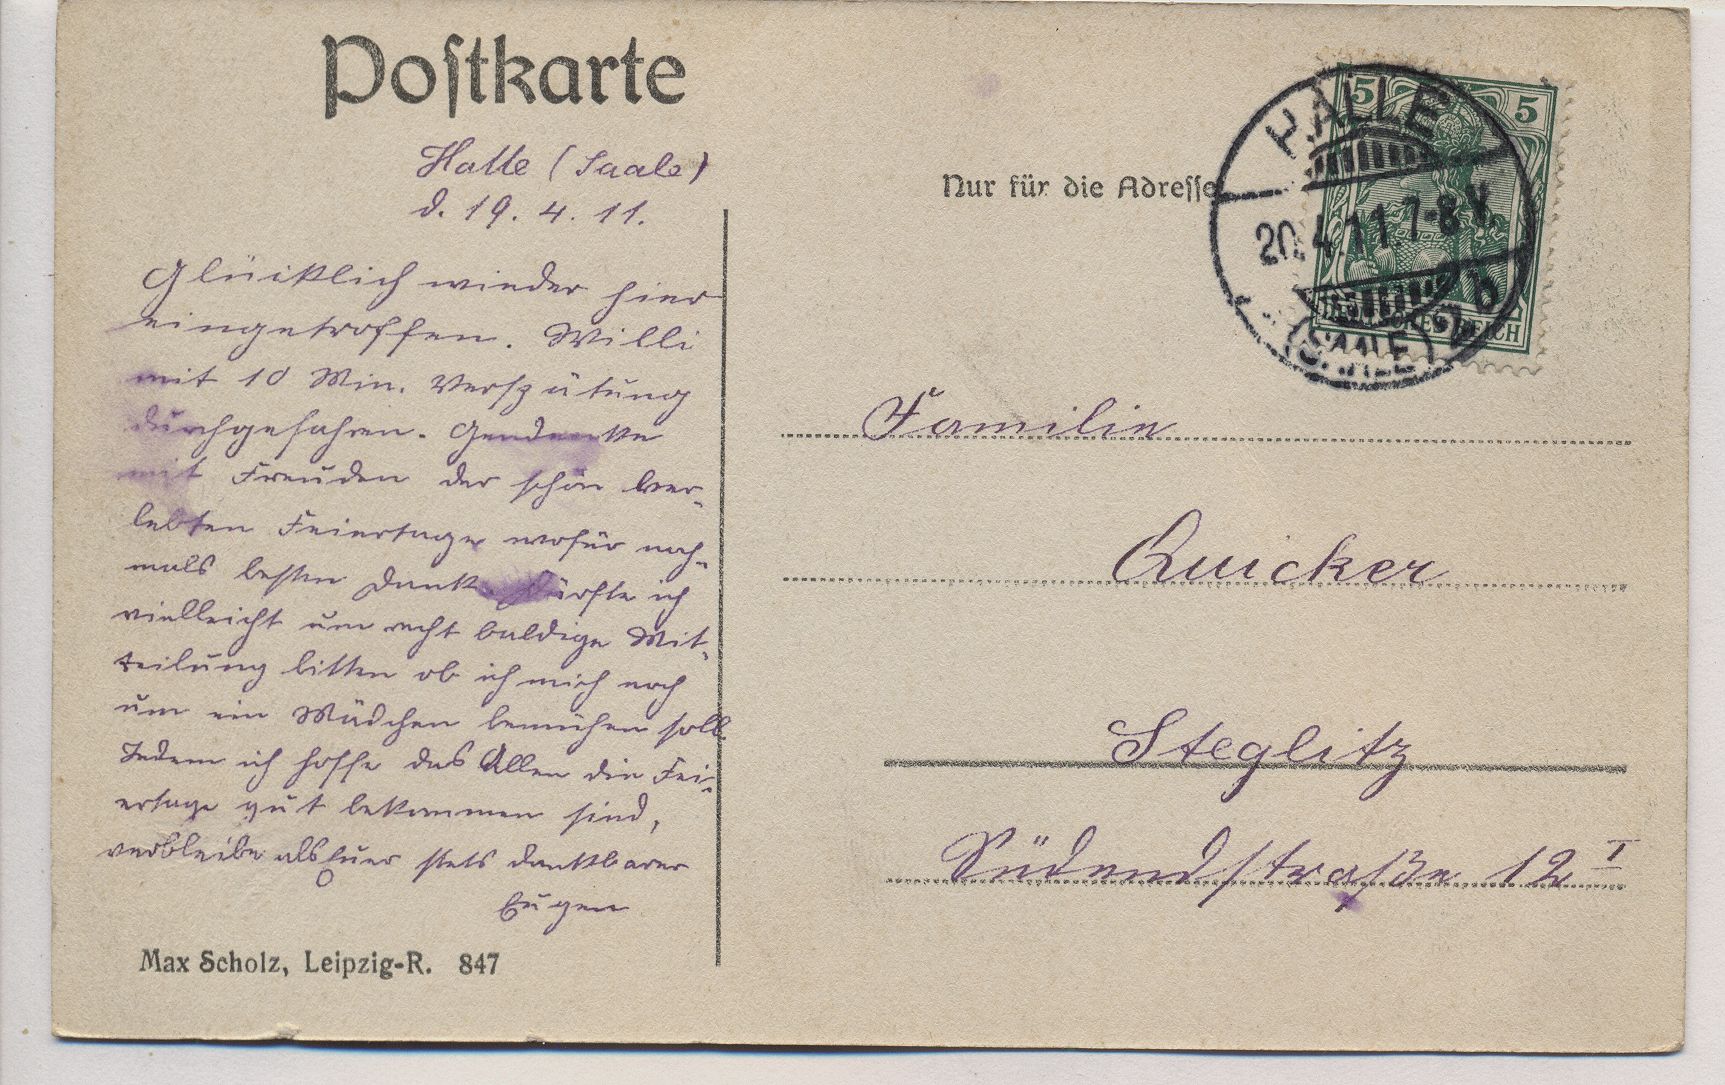 Postkarte
Halle (Saale)
d. 19. 4. 11.
Glücklich wieder hier
eingetroffen. Willi
mit 10 Min. Verspätung
durchgefahren. Gendenke
mit Freuden der schön ver-
lebten Feiertage wofür noch-
mals besten Dank. Dürfte ich
vielleicht um recht baldige Mit-
teilung bitten ob ich mich noch
um ein Mädchen bemühen soll.
Indem ich hoffe das Allen die Fei-
ertage gut bekommen sind,
verbleibe als Euer stets dankbarer
Eugen
Max Scholz, Leipzig-R. 847
Nur für die Adresse
HALLE
20.4.11.7-8 V.
(SAALE) 2 b
5 5
DEUTSCHES REICH
Familie
Quicker
Steglitz
Südendstraße 12 I